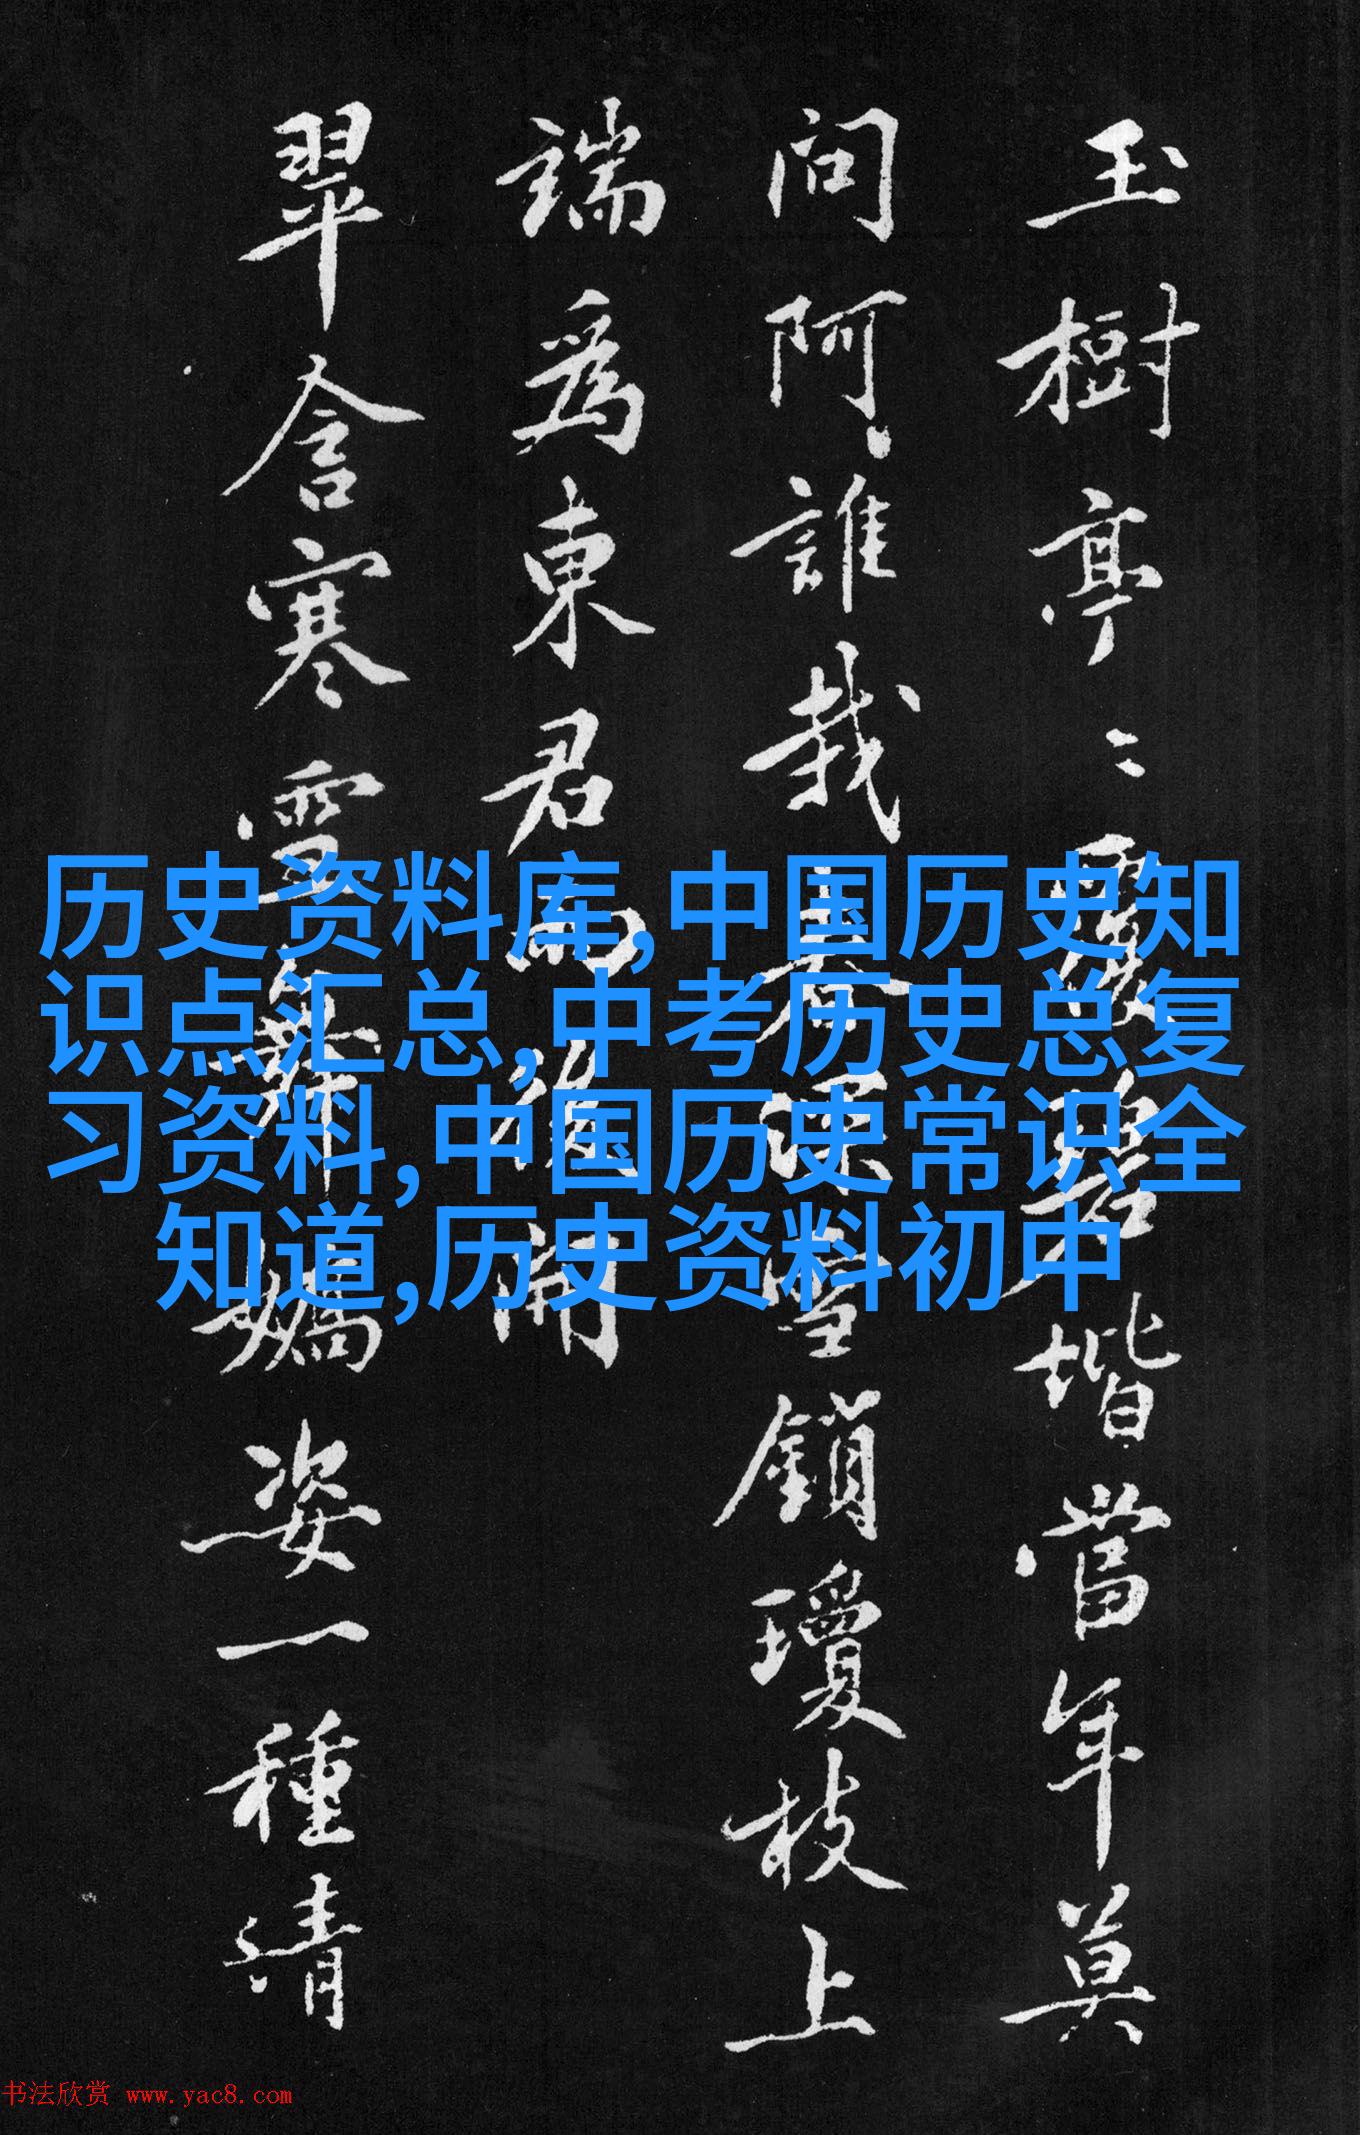 玉樹亭〻覆碧堦當年莫
問阿誰栽春深雪鎖瓊枝上
端爲東君雨後開
翆含寒雪舞嬌姿一種清
历史资料库,中国历史知
识点汇总,中考历史总复
习资料,中国历史常识全
知道,历史资料初中
书法欣赏 www.yac8.com